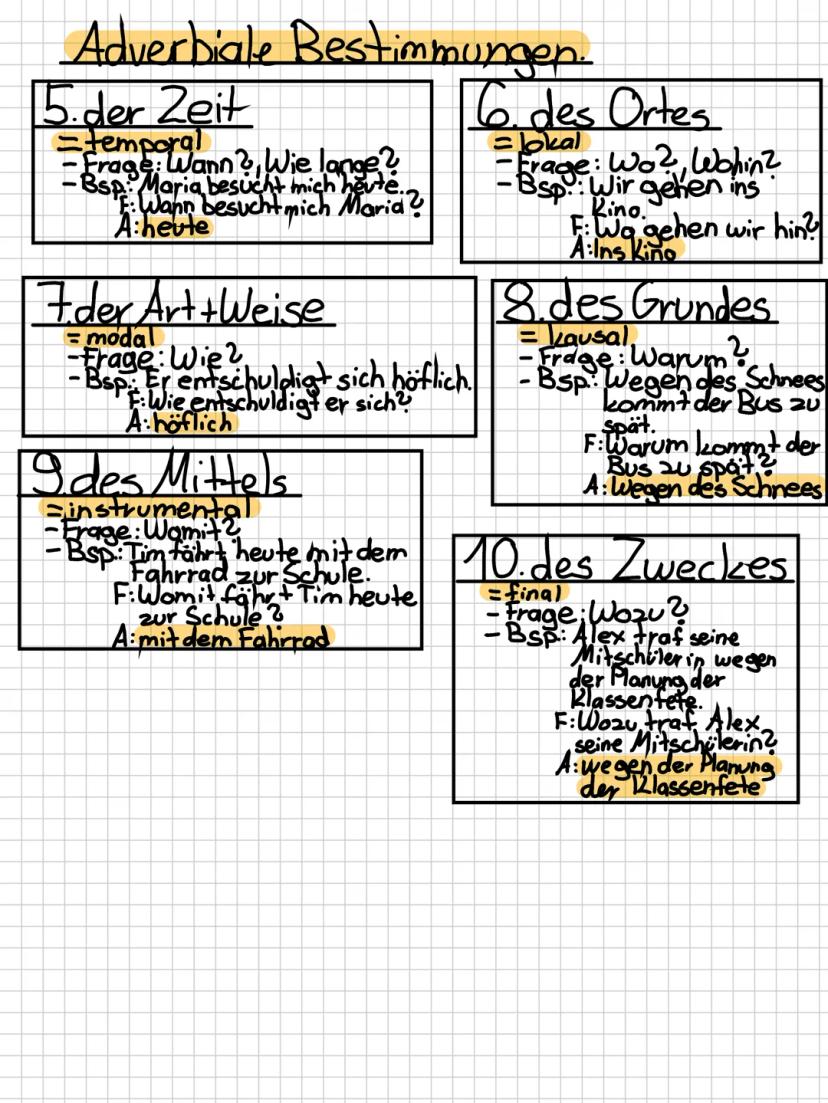 Adverbiale Bestimmungen.
5. der Zeit
= temporal
- Frage: Wann?, Wie lange?
- Bsp.: Maria besucht mich heute.
F: Wann besucht mich Maria?
A: heute
6. des Ortes
= lokal
- Frage: Wo?, Wohin?
- Bsp.: Wir gehen ins
Kino.
F: Wo gehen wir hin?
A: Ins Kino
7. der Art + Weise
= modal
- Frage: Wie?
- Bsp.: Er entschuldigt sich höflich.
F: Wie entschuldigt er sich?
A: höflich
8. des Grundes
= kausal
- Frage: Warum?
- Bsp.: Wegen des Schnees
kommt der Bus zu
spät.
F: Warum kommt der
Bus zu spät?
A: Wegen des Schnees
9. des Mittels
= instrumental
- Frage: Womit?
- Bsp.: Tim fährt heute mit dem
Fahrrad zur Schule.
F: Womit fährt Tim heute
zur Schule?
A: mit dem Fahrrad
10. des Zweckes
= final
- Frage: Wozu?
- Bsp.: Alex traf seine
Mitschülerin wegen
der Planung der
Klassenfete.
F: Wozu traf Alex
seine Mitschülerin?
A: wegen der Planung
der Klassenfete